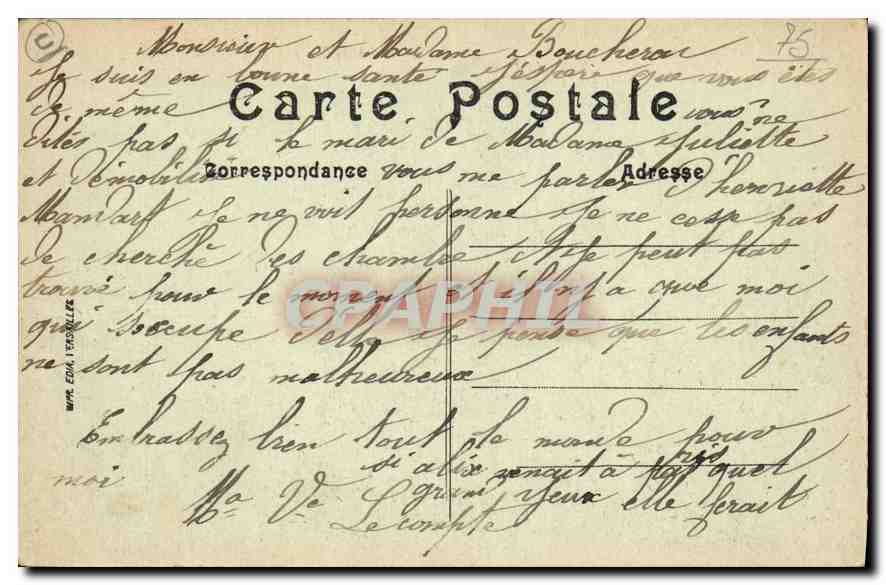 75
Monsieur et Madame Boucherou
Je suis en bonne santé J'éspere que vous êtes
de même
Carte Postale
vous ne
dités pas si le mari de Madame Juliette
et démobilisé
Correspondance
vous me parler
Adresse
d'henriette
Mandart Je ne voit personne Je ne cesse pas
de cherché des chambre et Je peut pas
trouvé pour le moment et il n'y a que moi
qui s'occupe d'elle Je pense que les enfants
ne sont pas malheureux
Embrassez bien tout le monde pour
moi
si alix venait à paris quel
grand yeux elle ferait
Ma Ve
Lecompte
IMP. EDIA, VERSAILLES
CPAPHIL